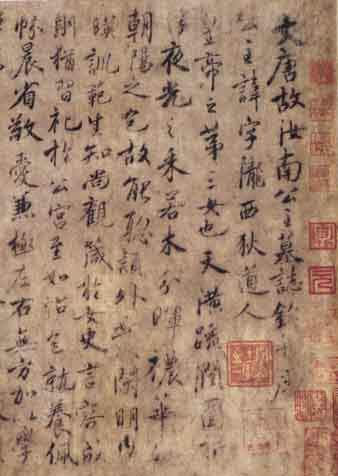 大唐故汝南公主墓誌銘并序
公主諱字隴西狄道人
皇帝之第三女也天潢疏潤圓折
浮夜光之采若木分暉穠華照
朝陽之色故能聰穎外發閑明內
暎訓範生知尚觀箴於女史言容成
則猶習礼於公宮至如怡色就養佩
帉晨省敬愛兼極左右無方加以學